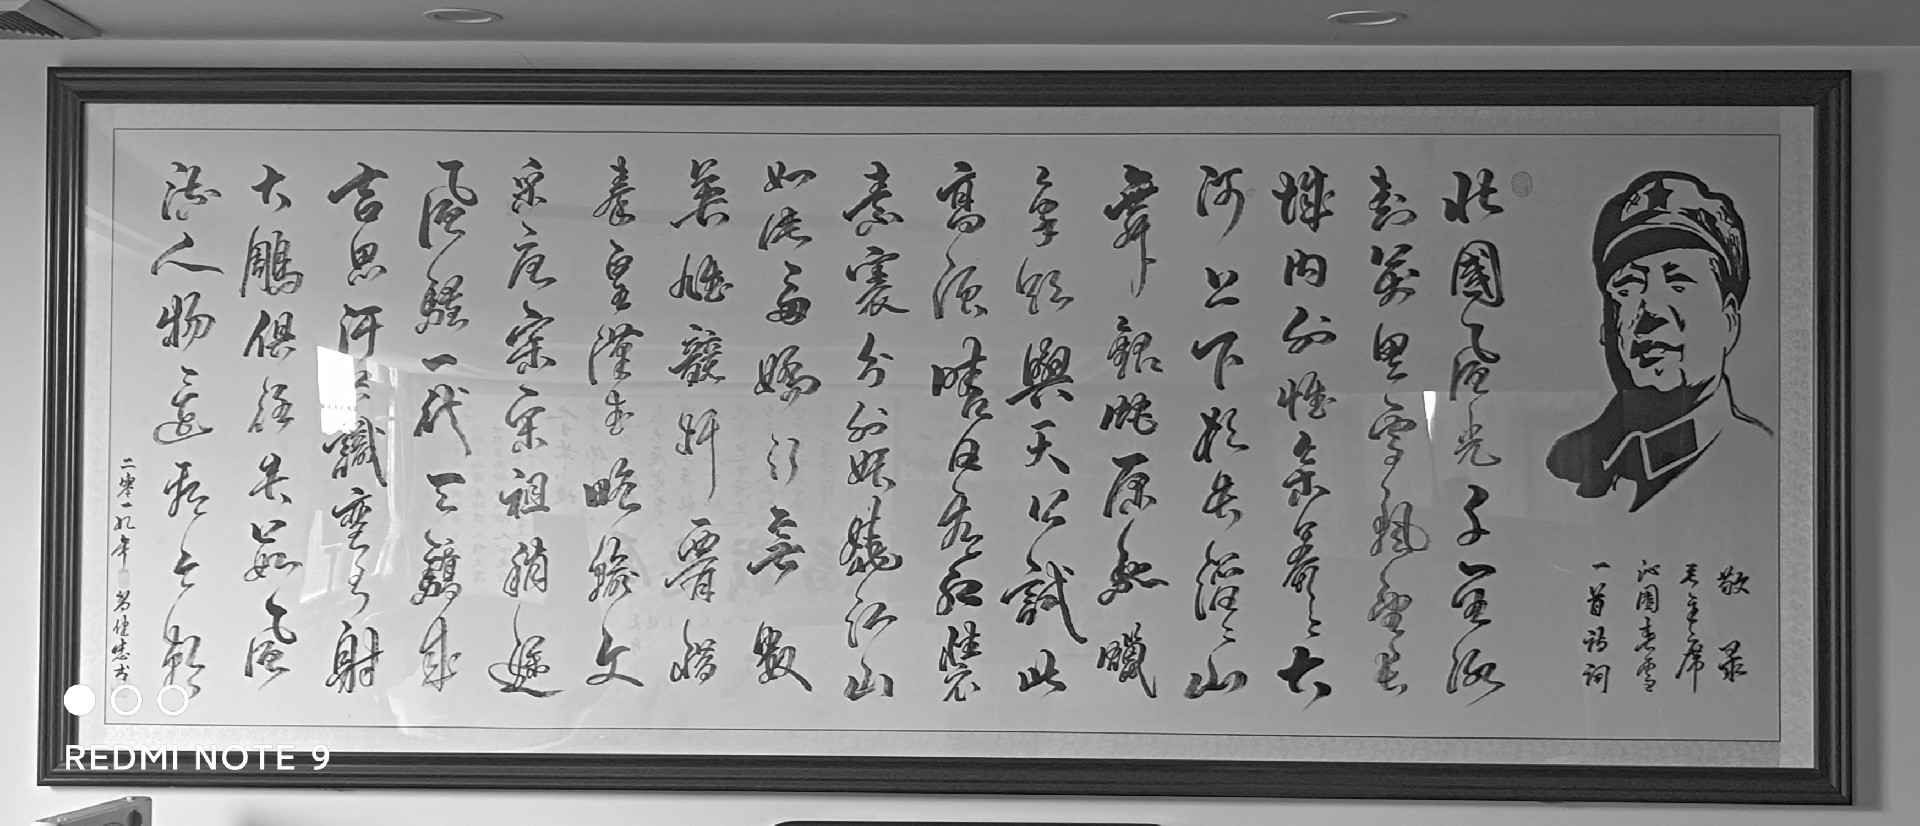 敬录
毛主席
沁園春雪
一首詩詞
北國風光千里冰
封萬里雪飄望長
城内外惟余莽〻大
河上下頓失滔〻山
舞銀蛇原馳蠟
象欲與天公試比
高須晴日看紅裝
素裹分外妖嬈江山
如此多嬌引無數
英雄競折腰惜
秦皇漢武略輸文
采唐宗宋祖稍遜
風騷一代天驕成
吉思汗只識彎弓射
大鵰俱往矣數風
流人物還看今朝
二零一九年
REDMI NOTE 9